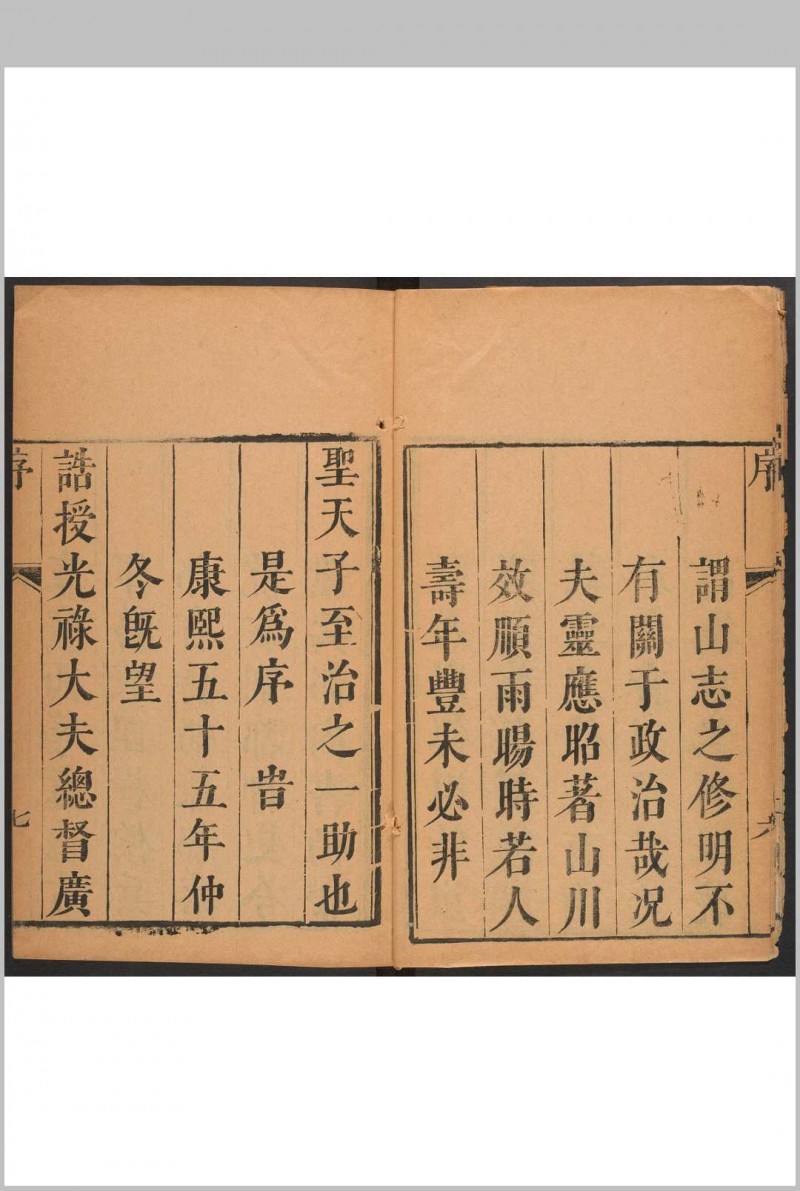 序
六
謂山志之修明不
有關于政治哉况
夫靈應昭著山川
效順雨暘時若人
壽年豐未必非
聖天子至治之一助也
是爲序 旹
康熙五十五年仲
冬旣望
誥授光祿大夫總督廣
序
七